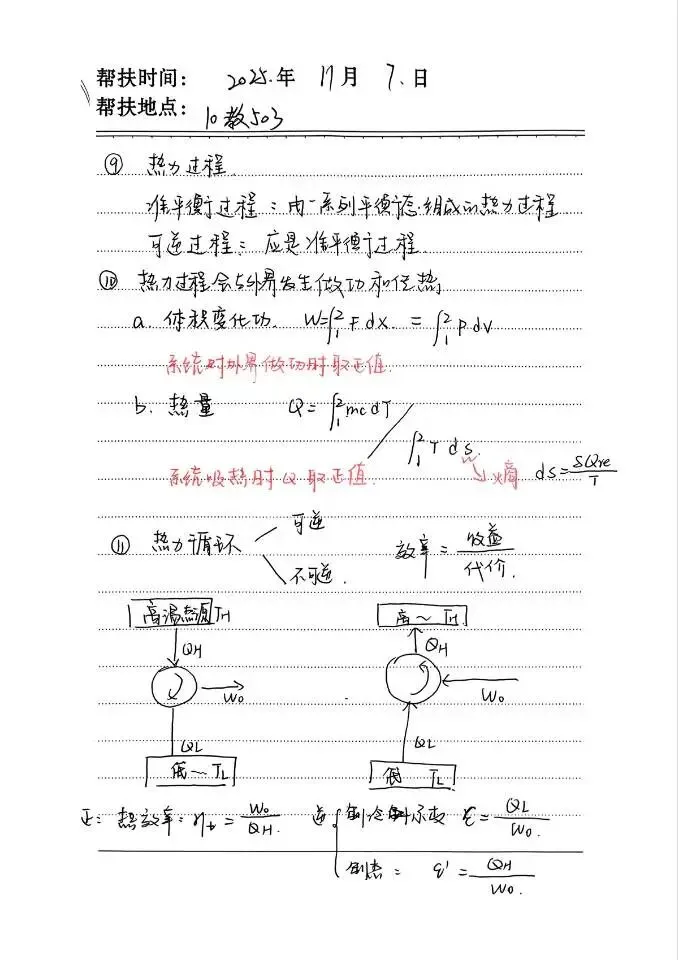 帮扶时间： 2025.年 11月 7.日
帮扶地点： 10教503
⑨ 热力过程.
准平衡过程：由一系列平衡态组成的热力过程
可逆过程：应是准平衡过程.
⑩ 热力过程会与外界发生做功和传热
a. 体积变化功. W=∫₁²Fdx. = ∫₁²pdv
系统对外界做功时取正值.
b. 热量 Q=∫₁²mcdT
∫₁²Tds.
系统吸热时Q取正值. ↘熵 ds=δQre/T
⑪ 热力循环
可逆
不可逆.
效率=收益/代价.
高温热源TH 高~TH
QH QH
W0 W0
QL QL
低~TL 低 TL
正：热效率：ηt=W0/QH. 逆{制冷制冷系数 ε=QL/W0.
制热： ε'=QH/W0.